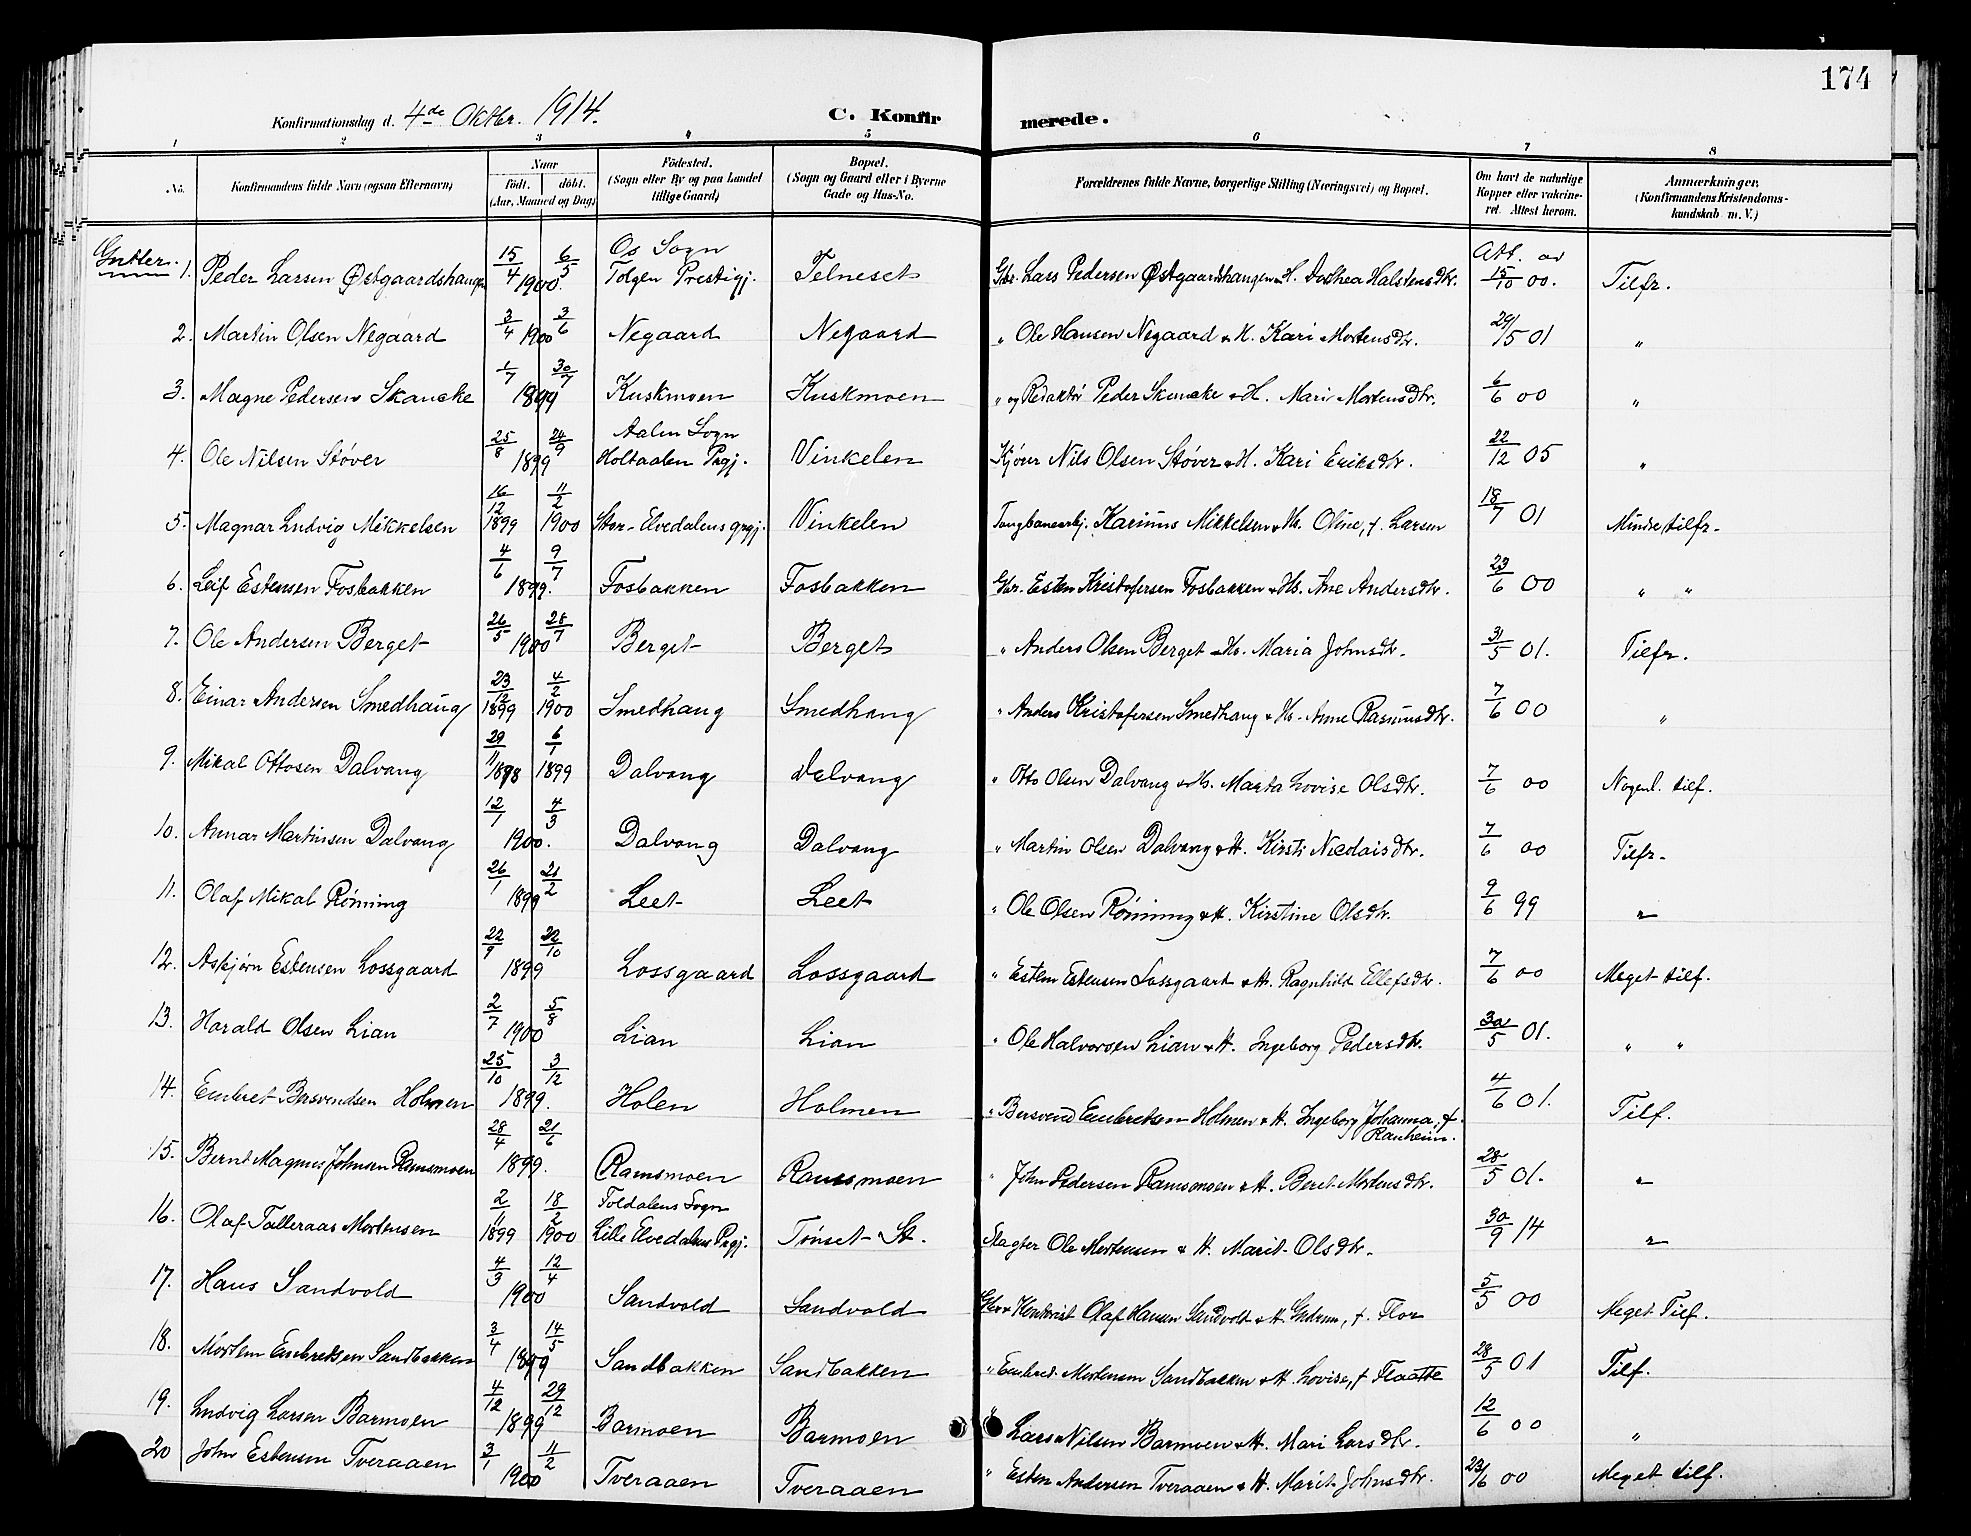 174
Konfirmationsdag d. 4de Oktbr. 1914. C. Konfirmerede.
1 2 3 4 5 6 7 8
No. Konfirmandens fulde Navn (ogsaa Efternavn) Naar født. døbt. (Aar, Maaned og Dag) Födested. (Sogn eller By og paa Landet tillige Gaard) Bopæl. (Sogn og Gaard eller i Byerne Gade og Hus-No. Forældrenes fulde Navne, borgerlige Stilling (Næringsvei) og Bopæl. Om havt de naturlige Kopper eller vakcineret. Attest herom. Anmærkninger. (Konfirmandens Kristendomskundskab m. V.)
Gutter.
1. Peder Larsen Østgaardshaugen 15/4 1900. 6/5 Os Sogn Tolgen Prestigj. Telneset Gbr. Lars Pedersen Østgaardshaugen & H. Dorthea Halstensdtr. Att. av 15/10 00. Tilfr.
2. Martin Olsen Negaard 3/4 1900 3/6 Negaard Negaard " Ole Hansen Negaard & H. Kari Mortensdtr. 29/5 01 "
3. Magne Pedersen Skancke 1/7 1899 30/7 Kuskmoen Kuskmoen " og Redaktør Peder Skancke & H. Mari Mortensdtr. 6/6 00 "
4. Ole Nilsen Støver 25/8 1899 24/9 Aalen Sogn Holtaalen Prgj. Vinkelen Nils Olsen Støver & H. Kari Eriksdtr. 22/12 05 "
5. Magnar Ludvig Mikkelsen 16/12 1899 11/2 1900 Stor-Elvedalens prgj. Vinkelen Karinus Mikkelsen & Hs. Oline, f. Larsen 18/7 01 Minde tilfr.
6. Leif Estensen Fosbakken 4/6 1899. 9/7 Fosbakken Fosbakken Gbr. Esten Kristofersen Fosbakken & Hs. Ane Andersdtr. 23/6 00 " "
7. Ole Andersen Berget 26/5 1900 28/7 Berget Berget " Anders Olsen Berget & Hs. Maria Johnsdtr. 31/5 01. Tilfr.
8. Einar Andersen Smedhaug 23/12 1899 4/2 1900 Smedhaug Smedhaug " Anders Kristofersen Smedhaug & Hs. Anne Rasmusdtr. 7/6 00 "
9. Mikal Ottosen Dalvang 29/11 1898 6/1 1899 Dalvang Dalvang " Otto Olsen Dalvang & Hs. Marta Lovise Olsdtr. 7/6 00 Nogenl. tilf.
10. Annar Martinsen Dalvang 12/1 1900. 4/3 Dalvang Dalvang " Martin Olsen Dalvang & H. Kirsti Nicolaisdtr. 7/6 00 Tilfr.
11. Olaf Mikal Rønning 26/1 1899 21/2 Leet Leet " Ole Olsen Rønning & H. Kirstine Olsdtr. 9/6 99 "
12. Asbjørn Estensen Lossgaard 22/9 1899 22/10 Lossgaard Lossgaard " Esten Estensen Lossgaard & H. Ragnhild Ellefsdtr. 7/6 00 Meget tilf.
13. Harald Olsen Lian 2/7 1900 5/8 Lian Lian " Ole Halvorsen Lian & H. Ingeborg Pedersdtr. 30/5 01. " "
14. Embret Bersvendsen Holmen 25/10 1899. 3/12 Holen Holmen " Bersvend Embretsen Holmen & H. Ingeborg Johanna, f. Ranheim. 4/6 01. Tilf.
15. Bernt Magnus Johnsen Ramsmoen 28/4 1899. 21/6 Ramsmoen Ramsmoen " John Pedersen Ramsmoen & H. Beret Mortensdtr. 28/5 01. "
16. Olaf Talleraas Mortensen 2/11 1899 18/2 1900 Foldalens Sogn Lille Elvedalens Prgj. Tønset St. Slagter Ole Mortensen & H. Marit Olsdtr. 30/9 14 "
17. Hans Sandvold 4/3 1900 12/4 Sandvold Sandvold Olaf Hansen Sandvold & H. Gudrun, f. Flor 5/5 00 Meget Tilf.
18. Morten Embretsen Sandbakken 3/4 1899 14/5 Sandbakken Sandbakken " Embret Mortensen Sandbakken & H. Lovise, f. Flaatte 28/5 01 Tilf.
19. Ludvig Larsen Barmoen 4/12 1899 29/12 Barmoen Barmoen " Lars Nilsen Barmoen & H. Mari Larsdtr. 12/6 00 "
20 John Estensen Tveraaen 3/1 1900 11/2 Tveraaen Tveraaen " Esten Andersen Tveraaen & H. Marit Johnsdtr. 23/6 00 Meget tilf.